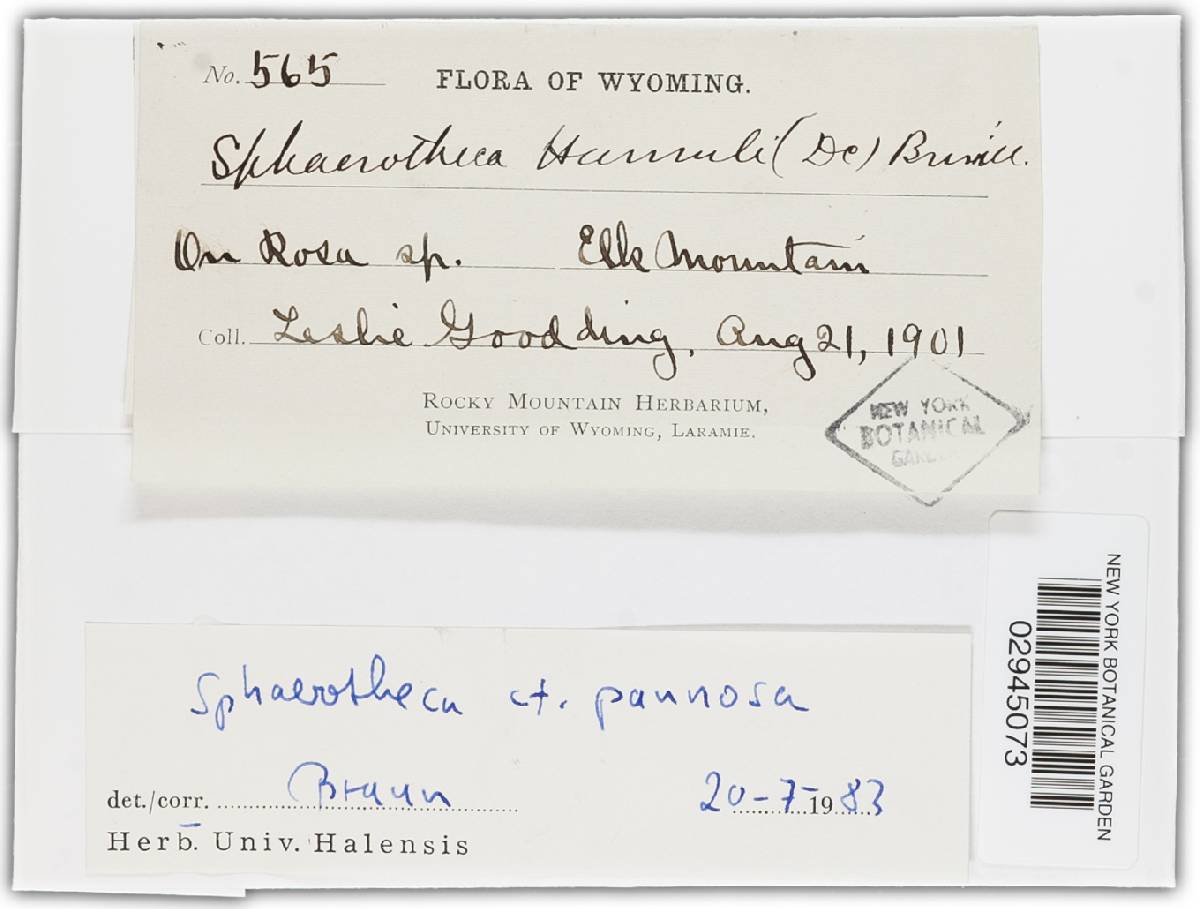 No. 565 FLORA OF WYOMING.
Sphaerotheca Humuli (DC) Burrill.
On Rosa sp. Elk Mountain
Coll. Leslie Goodding, Aug 21, 1901
ROCKY MOUNTAIN HERBARIUM,
UNIVERSITY OF WYOMING, LARAMIE.
NEW YORK
BOTANICAL
GARDEN
NEW YORK BOTANICAL GARDEN
02945073
Sphaerotheca cf. pannosa
det./corr. Braun 20-7-1983
Herb. Univ. Halensis